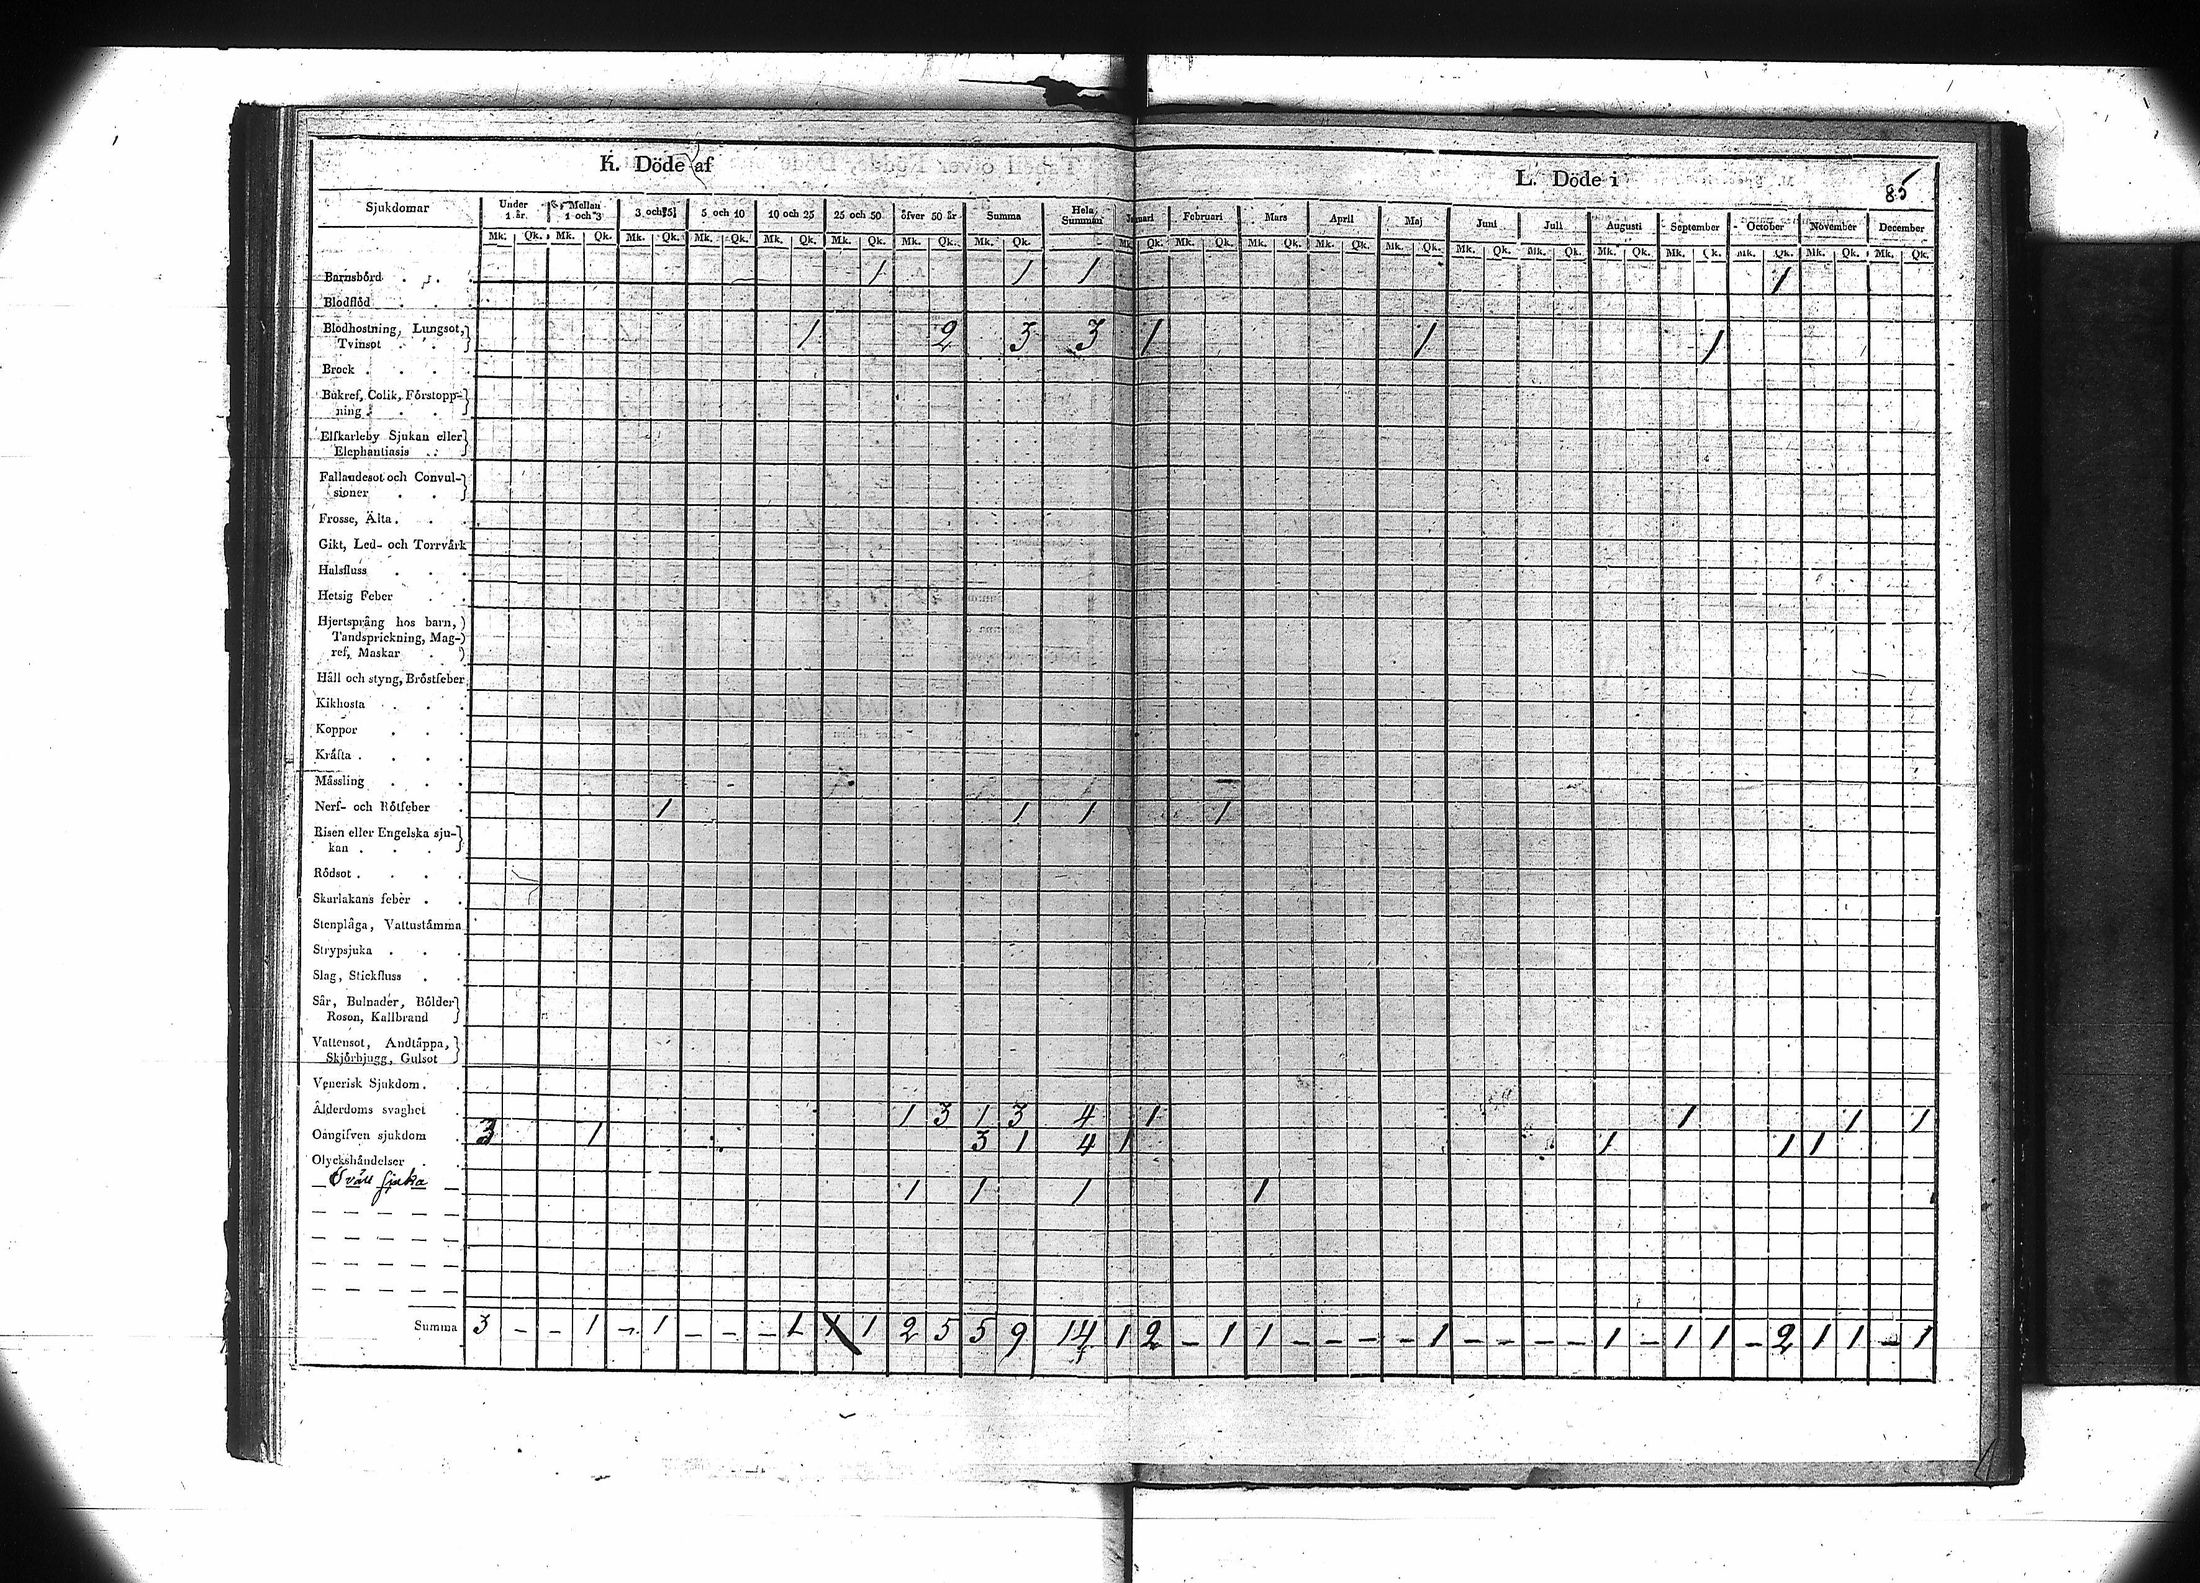 K. Döde af
L. Döde i
85
Sjukdomar Under 1 år. Mellan 1 och 3 3 och 5 5 och 10 10 och 25 25 och 50 öfver 50 år Summa Hela Summan Januari Februari Mars April Maj Juni Juli Augusti September October November December
Mk. Qk. Mk. Qk. Mk. Qk. Mk. Qk. Mk. Qk. Mk. Qk. Mk. Qk. Mk. Qk. Mk. Qk. Mk. Qk. Mk. Qk. Mk. Qk. Mk. Qk. Mk. Qk. Mk. Qk. Mk. Qk. Mk. Qk. Mk. Qk. Mk. Qk. Mk. Qk.
Barnsbörd . . . 1 1 1 1
Blodflöd . . .
Blodhostning, Lungsot,
Tvinsot . . . 1 2 3 3 1 1 1
Brock . . . .
Bukref, Colik, Förstopp-
ning . . .
Elfkarleby Sjukan eller
Elephantiasis . .
Fallandesot och Convul-
sioner . .
Frosse, Älta . . .
Gikt, Led- och Torrvärk
Halsfluss . . .
Hetsig Feber . .
Hjertsprång hos barn,
Tandsprickning, Mag-
ref, Maskar .
Håll och styng, Bröstfeber
Kikhosta . . .
Koppor . . .
Kräfta . . . .
Mässling . . .
Nerf- och Rötfeber . 1 1 1 1
Risen eller Engelska sju-
kan . . .
Rödsot . . . .
Skarlakans feber . .
Stenplåga, Vattustämma
Strypsjuka . . .
Slag, Stickfluss . .
Sår, Bulnader, Bölder
Roson, Kallbrand
Vattensot, Andtäppa,
Skjörbjugg, Gulsot
Venerisk Sjukdom . .
Ålderdoms svaghet . 1 3 1 3 4 1 1 1 1
Oangifven sjukdom . 3 1 3 1 4 1 1 1 1
Olyckshändelser . .
sjuka 1 1 1 1
Summa 3 - - 1 - 1 - - - 1 1 1 2 5 5 9 14 1 2 - 1 1 - - - - 1 - - - - 1 - 1 1 - 2 1 1 - 1